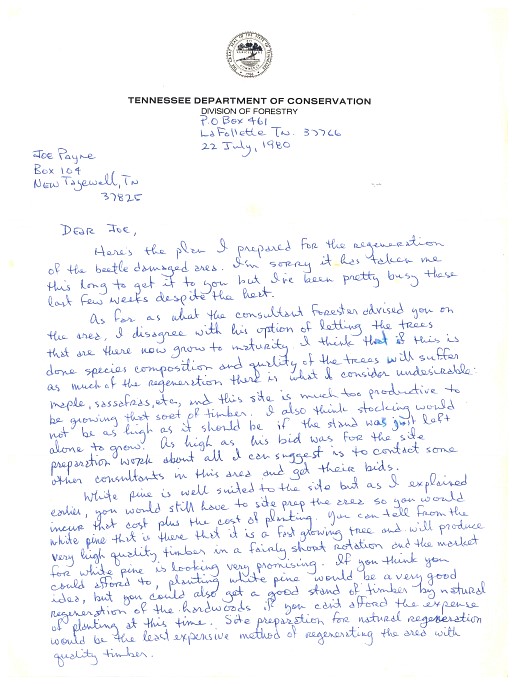 TENNESSEE DEPARTMENT OF CONSERVATION
DIVISION OF FORESTRY
P.O Box 461
LaFollette TN. 37766
22 July, 1980
Joe Payne
Box 104
New Tazewell, TN
37825
Dear Joe,
Here's the plan I prepared for the regeneration
of the beetle damaged area. I'm sorry it has taken me
this long to get it to you but I've been pretty busy these
last few weeks despite the heat.
As far as what the consultant forester advised you on
the area, I disagree with his option of letting the trees
that are there now grow to maturity. I think that if this is
done species composition and quality of the trees will suffer
as much of the regeneration there is what I consider undesirable:
maple, sassafras, etc, and this site is much too productive to
be growing that sort of timber. I also think stocking would
not be as high as it should be if the stand was just left
alone to grow. As high as his bid was for the site
preparation work about all I can suggest is to contact some
other consultants in this area and get their bids.
White pine is well suited to the site but as I explained
earlier, you would still have to site prep the area so you would
incur that cost plus the cost of planting. You can tell from the
white pine that is there that it is a fast growing tree and will produce
very high quality timber in a fairly short rotation and the market
for white pine is looking very promising. If you think you
could afford to, planting white pine would be a very good
idea, but you could also get a good stand of timber by natural
regeneration of the hardwoods if you can't afford the expense
of planting at this time. Site preparation for natural regeneration
would be the least expensive method of regenerating the area with
quality timber.